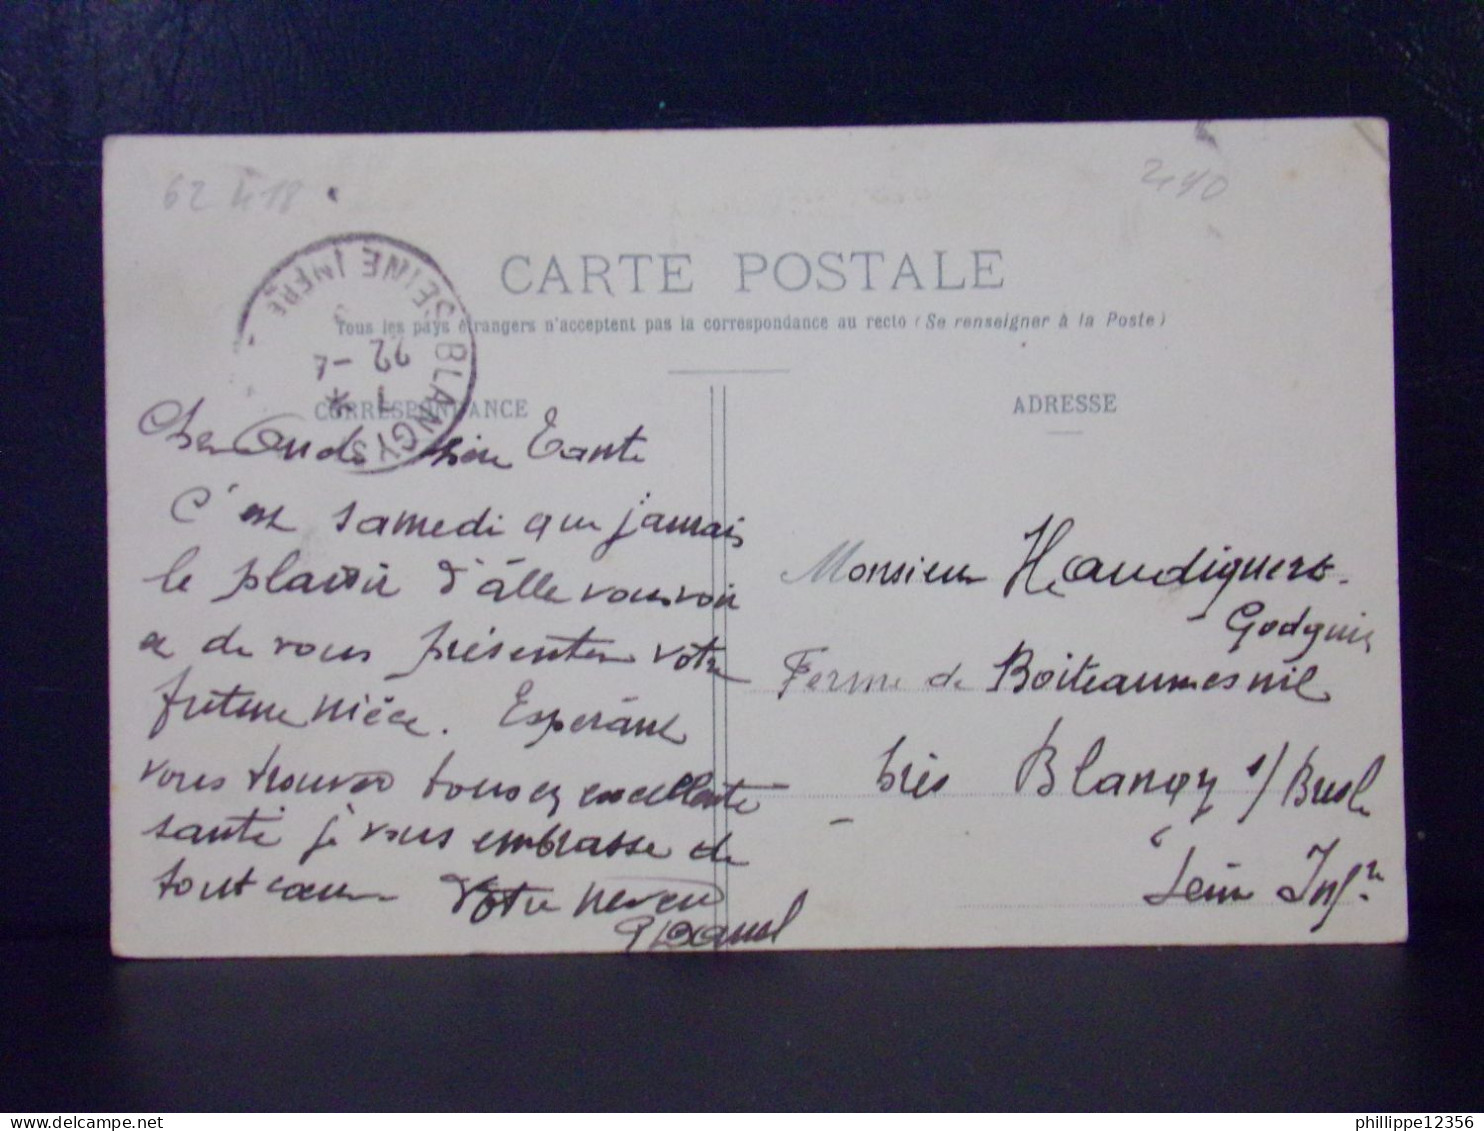 62 418
CARTE POSTALE
Tous les pays étrangers n'acceptent pas la correspondance au recto (Se renseigner à la Poste)
BLANGY S SEINE INFRE
22 - 4
CORRESPONDANCE
ADRESSE
Cher Oncle chère Tante
C'est samedi que j'aurais
le plaisir d'âlle vous voir
et de vous présenter votre
future nièce. Espérant
vous trouver tous en excellente
santé je vous embrasse de
tout cœur Votre neveu
Monsieur Haudiquert
Ferme de Boiteaumesnil
près Blangy s/ Bresle
Seine Infre
phillippe12356